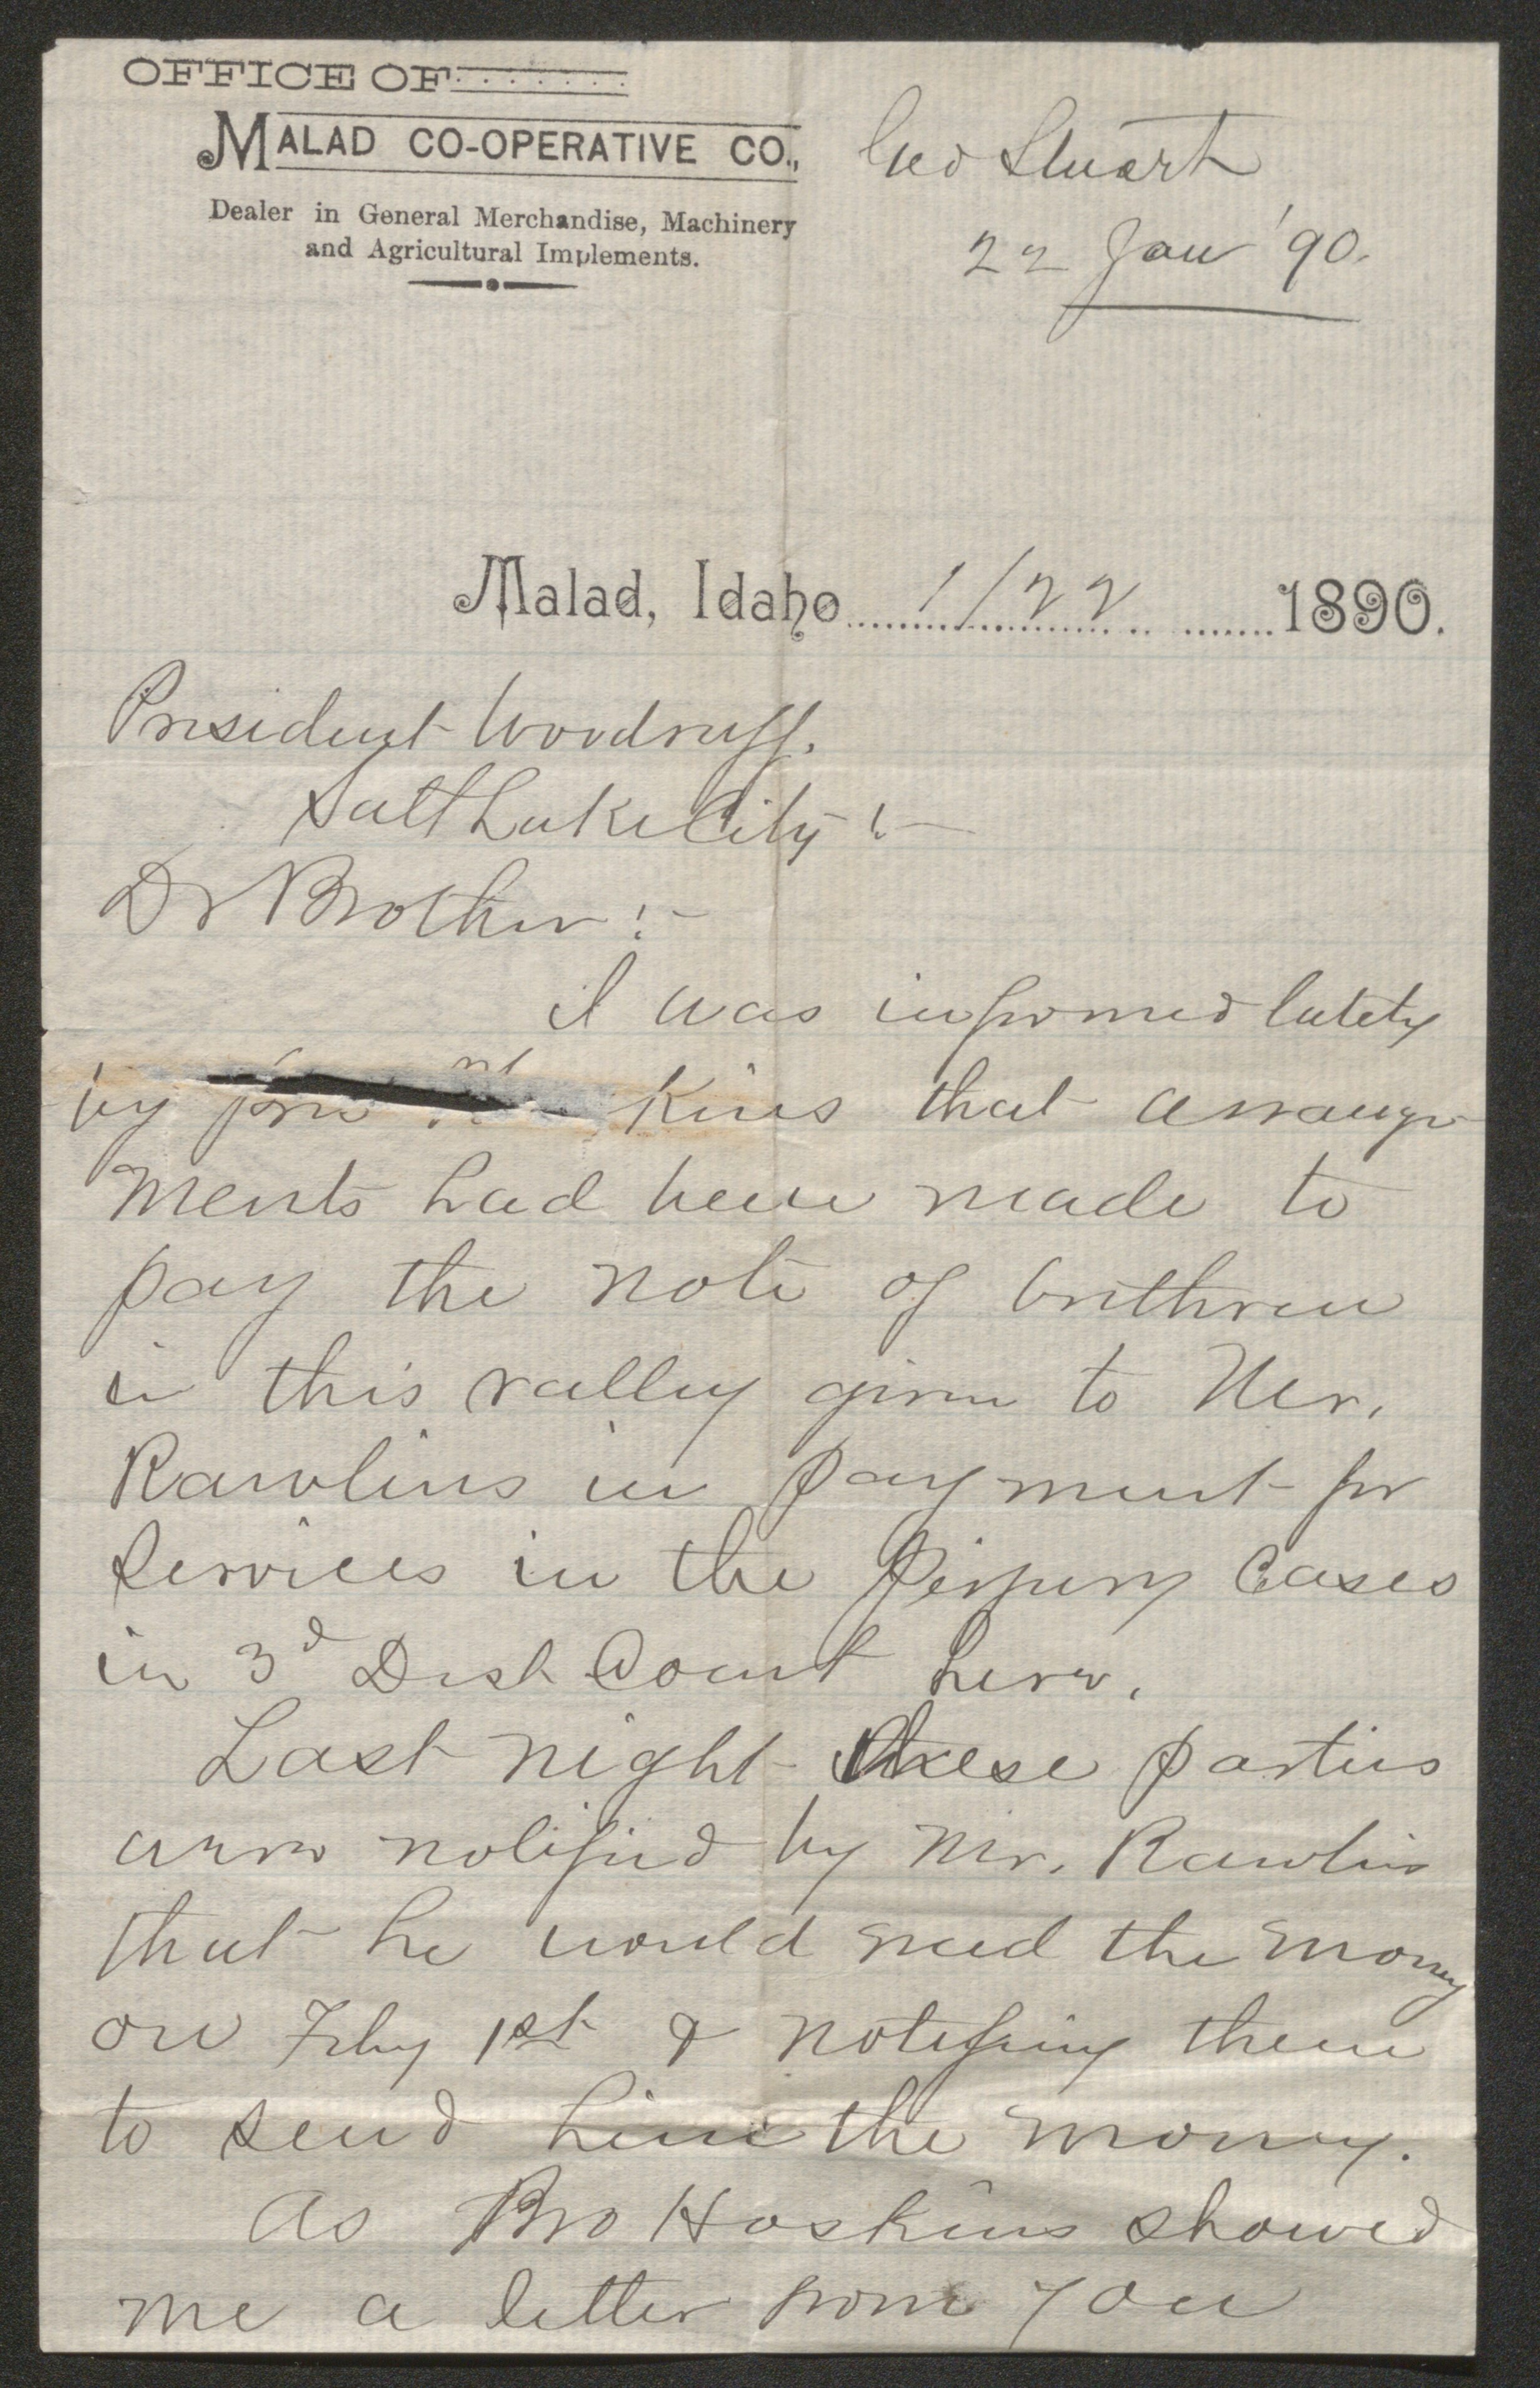 OFFICE OF
MALAD CO-OPERATIVE CO.,
Dealer in General Merchandise, Machinery
and Agricultural Implements.
Geo Stuart
22 Jan '90.
Malad, Idaho 1/22 1890.
President Woodruff.
Salt Lake City:-
Dr Brother:-
I was informed lately
by kins that arrange
ments had been made to
pay the note of brethren
in this valley given to Mr.
Rawlins in payment for
services in the Perjury Cases
in 3d Dist Court here.
Last night these parties
were notified by Mr. Rawlins
that he would need the money
on Feby 1st & notifying them
to send him the money.
As Bro Hoskins showed
me a letter from you